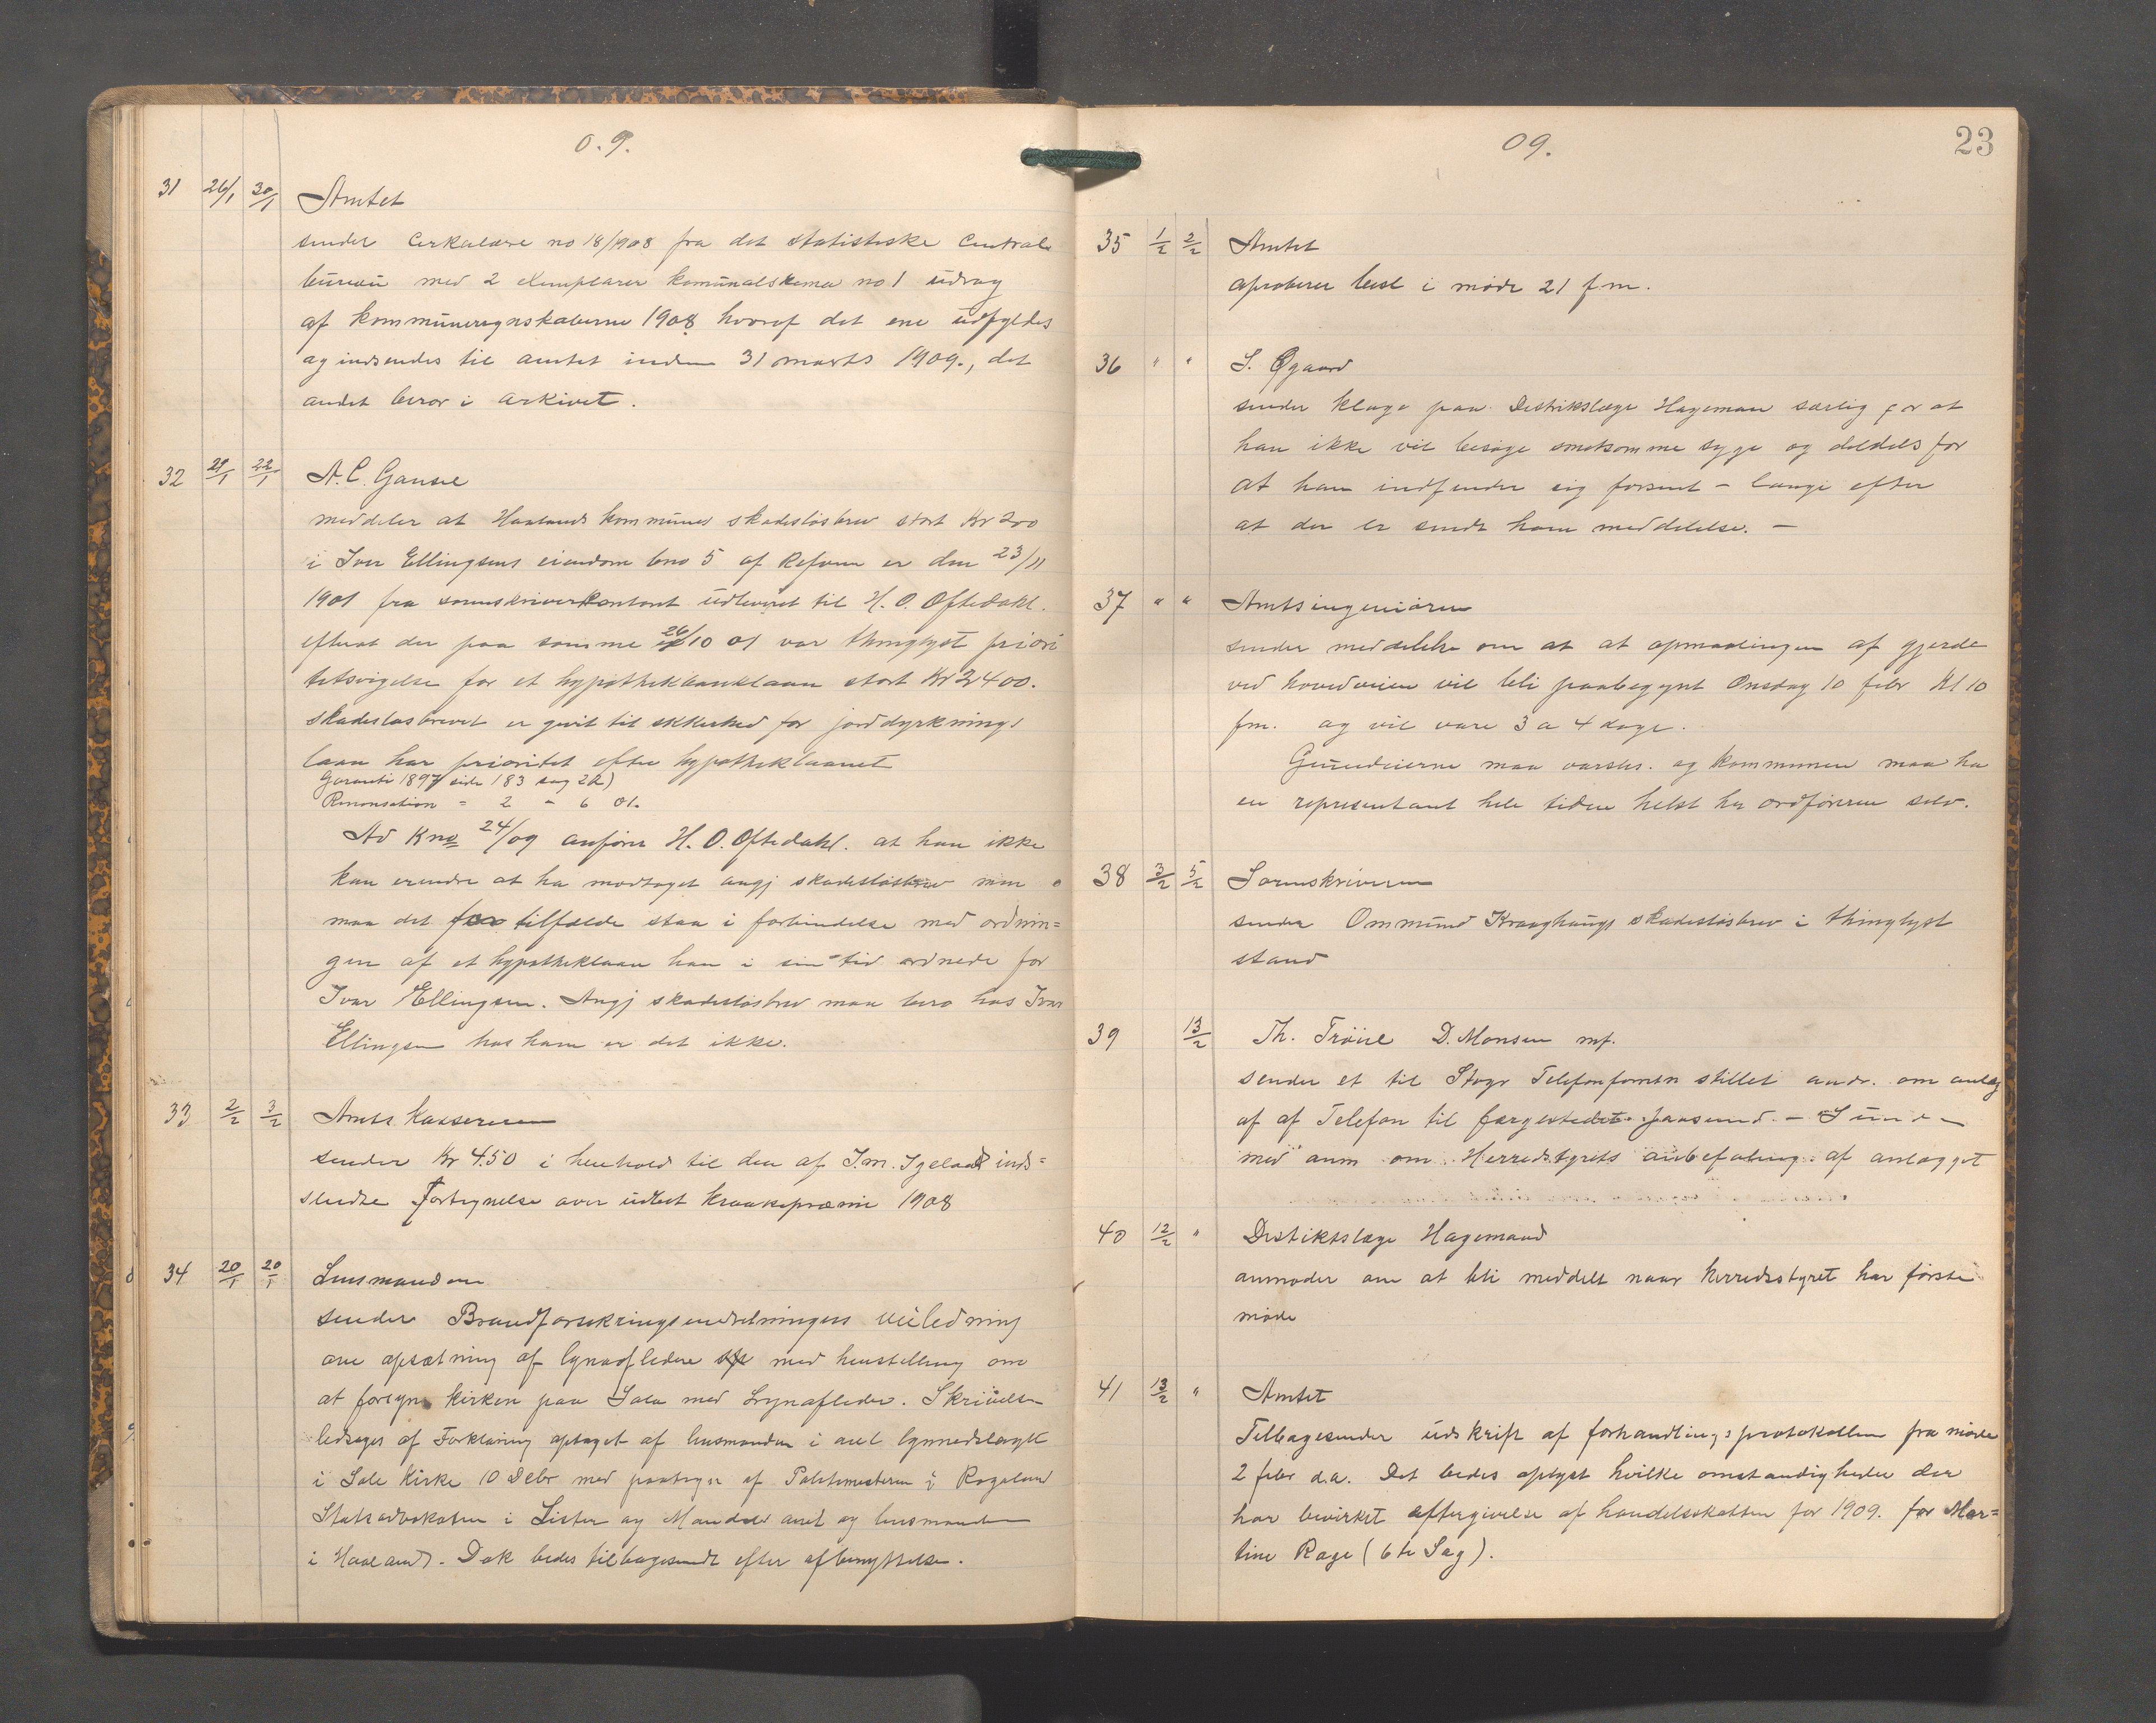 0.9.
31 26/1 30/1 Amtet
sender Cerkulære no 18/1908 fra det statistiske Central
büreaü med 2 exemplarer komünalskema no 1 üdrag
af kommüneregnskaberne 1908 hvoraf det ene üdfyldes
og indsendes til amtet inden 31 marts 1909., det
andet beror i arkivet.
32 29/1 A. C. Gausel
meddeler at Haalands kommünes skadesløsbrev stort Kr 200
i Iver Ellingsens eiendom bno 5 af Refsnes er den 23/11
1901 fra sorenskriverkontoret üdleveret til H. O. Oftedahl.
efterat der paa samme 26/10 01 var thinglyst priori
tetsvigelse for et hypothekbanklaan stort Kr 2400.
Skadesløsbrevet er givet til sikkerhed for jorddyrknings
laan har prioritet efter hypotheklaanet
Garanti 1897 side 183 sag 2
Renonsation = 2 - 6 01.
Ad Kno 24/09 anfører H. O. Oftedahl. at han ikke
kan erindre at ha modtaget angj skadesløsbrev men
maa det i tilfælde staa i forbindelse med ordnin=
gen af et hypotheklaan han i sin tid ordnede for
Ivar Ellingsen. Angj skadesløsbrev maa bero hos Ivar
Ellingsen hos ham er det ikke.
33 2/2 3/2 Amts kassereren
sender Kr 4.50 i henhold til den af J. M. Igeland ind=
sendte Fortegnelse over üdbet kraakepræmie 1908
34 20/1 20/1 Lensmanden
sender Brandforsikringsindretningens veiledning
om opsætning af lynafledere med henstilling om
at forsyne kirken paa Sola med Lynafleder. Skrivelsen
ledsages af Forklaring optaget af lensmanden i anl lynnedslaget
i Sole Kirke 10 Debr med paategn af Politimesteren i Rogaland
Statsadvokaten i Lister og Mandals amt og lensmanden
i Haaland. Dok bedes tilbagesendt efter afbenyttelse.
09. 23
35 1/2 2/2 Amtet
aproberer besl i møde 21 f m.
36 " " S. Øgaard
sender klage paa Distrikslæge Hageman særlig for at
han ikke vil besøge smotsomme syge og deldels for
at han indfinder sig forsent - længe efter
at der er sendt ham meddelelse. -
37 " " Amtsingeniøren
sender meddelelse om at at opmaalingen af gjerde
ved hovedveien vil bli paabegynt Onsdag 10 febr Kl 10
fm. og vil vare 3 a 4 dage.
Gründeierne maa varsles. og kommunen maa ha
en representant hele tiden helst ha ordføreren selv.
38 3/2 5/2 Sorenskriveren
sender Ommünd Kraaghaügs skadesløsbrev i thinglyst
stand
39 13/2 Th. Trøiel D. Monsen mf.
sender et til Stavgr Telefonforretn stillet andr. om anlæg
af af Telefon til færgestedet Jaasund. -
med anm om Herredstyrets anbefaling af anlægget
40 12/2 " Distiktslæge Hagemand
anmoder om at bli meddelt naar herredsstyret har første
møde
41 13/2 " Amtet
Tilbagesender üdskrift af forhandlingsprotokollen fra møde
2 febr d.a. Det bedes oplyst hvilke omstændigheder der
har bevirket eftergivelse af handelsskatten for 1909. for Mar=
tine Rage (6te Sag).